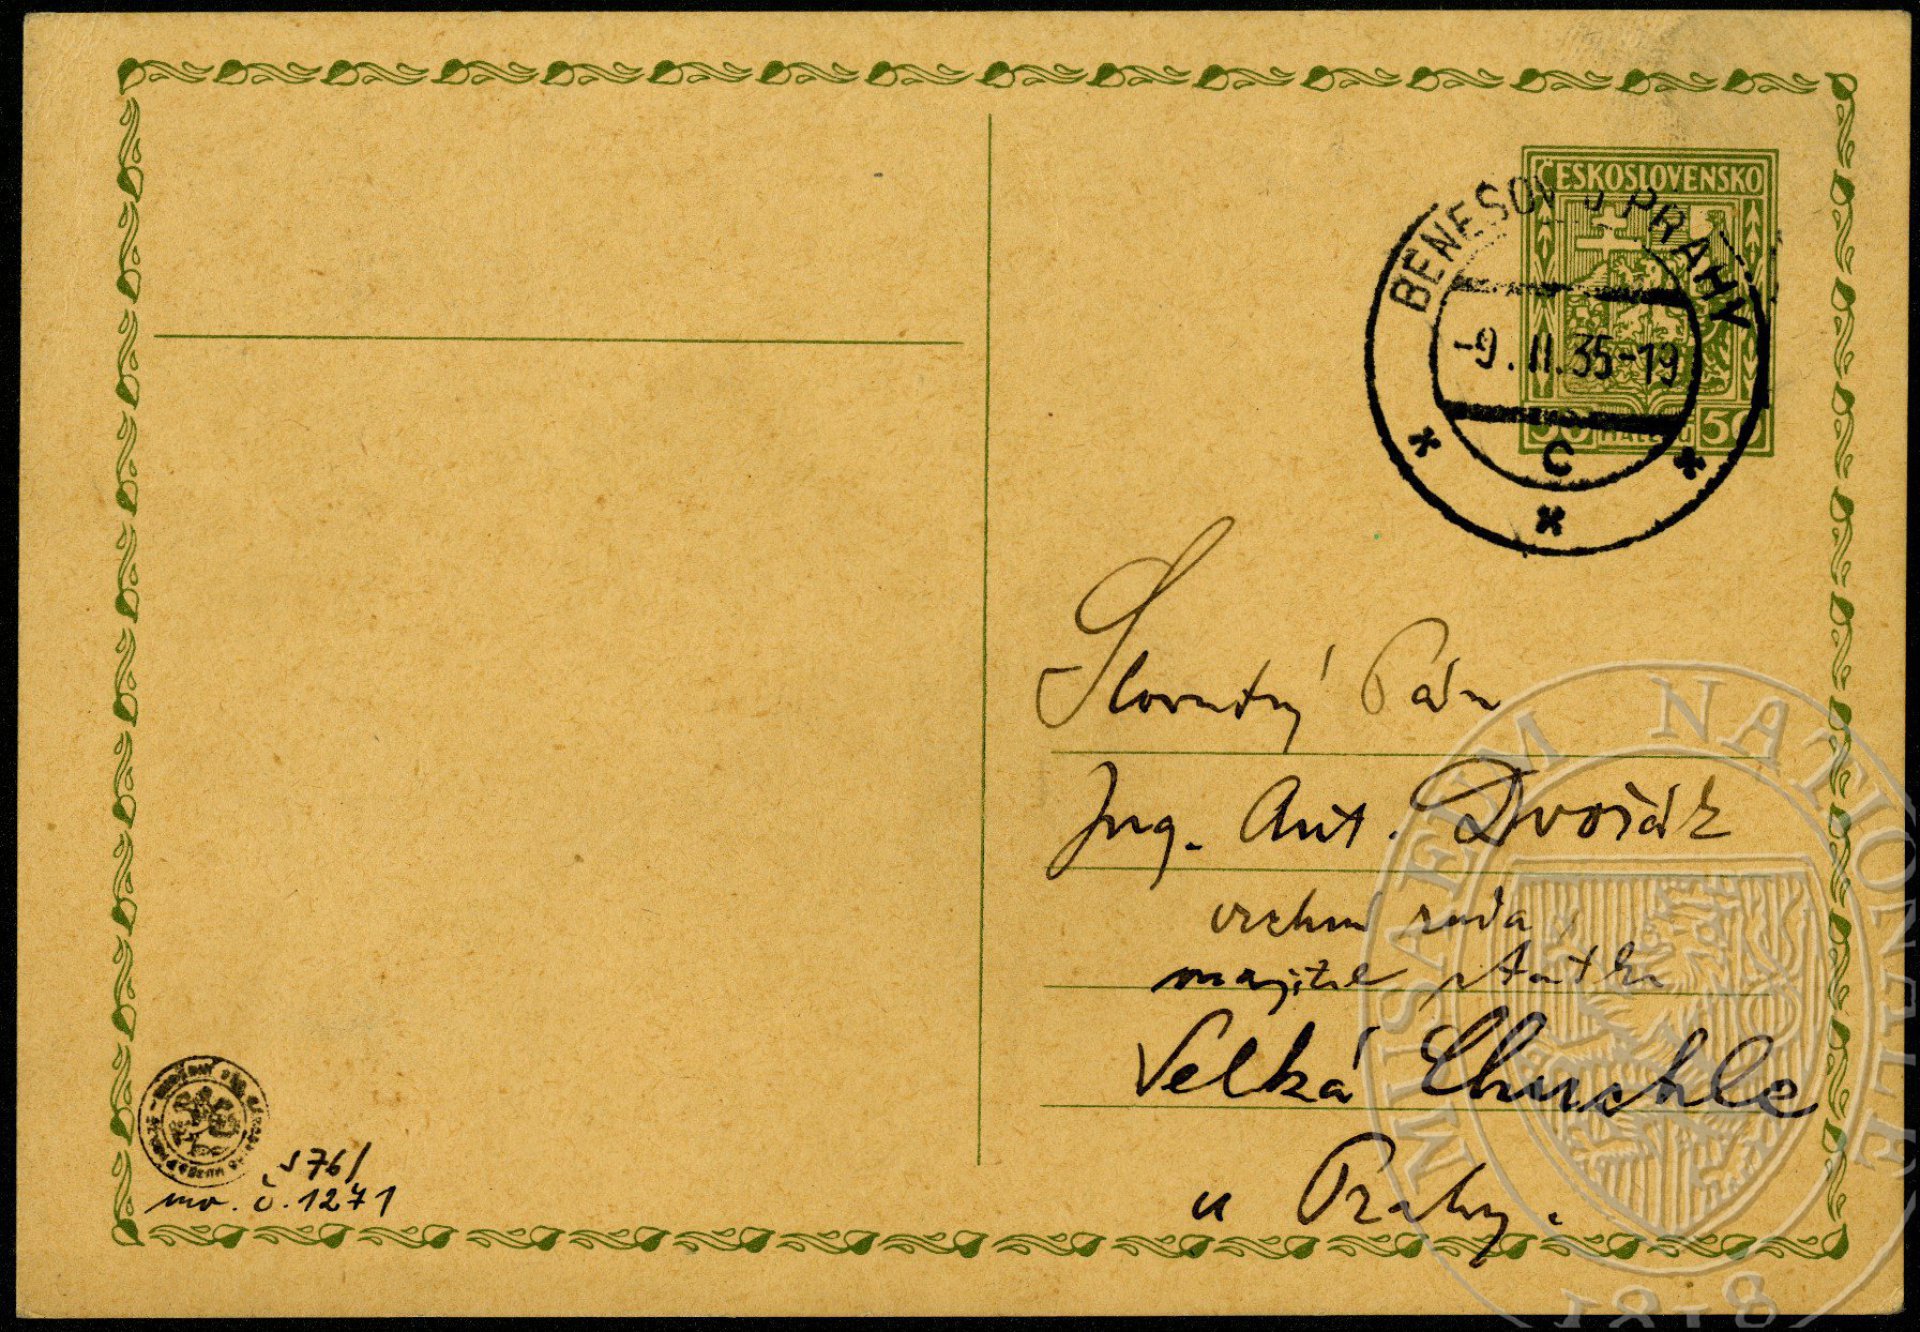 ČESKOSLOVENSKO
BENEŠOV U PRAHY
-9.II.35-19
50 HALÉŘŮ 50
C
Slovutný Pán
Ing. Ant. Dvořák
vrchní rada,
majitel statku
Velká Chuchle
u Prahy.
576/
inv. č. 1271
MVSAEVM NATIONALE
1818